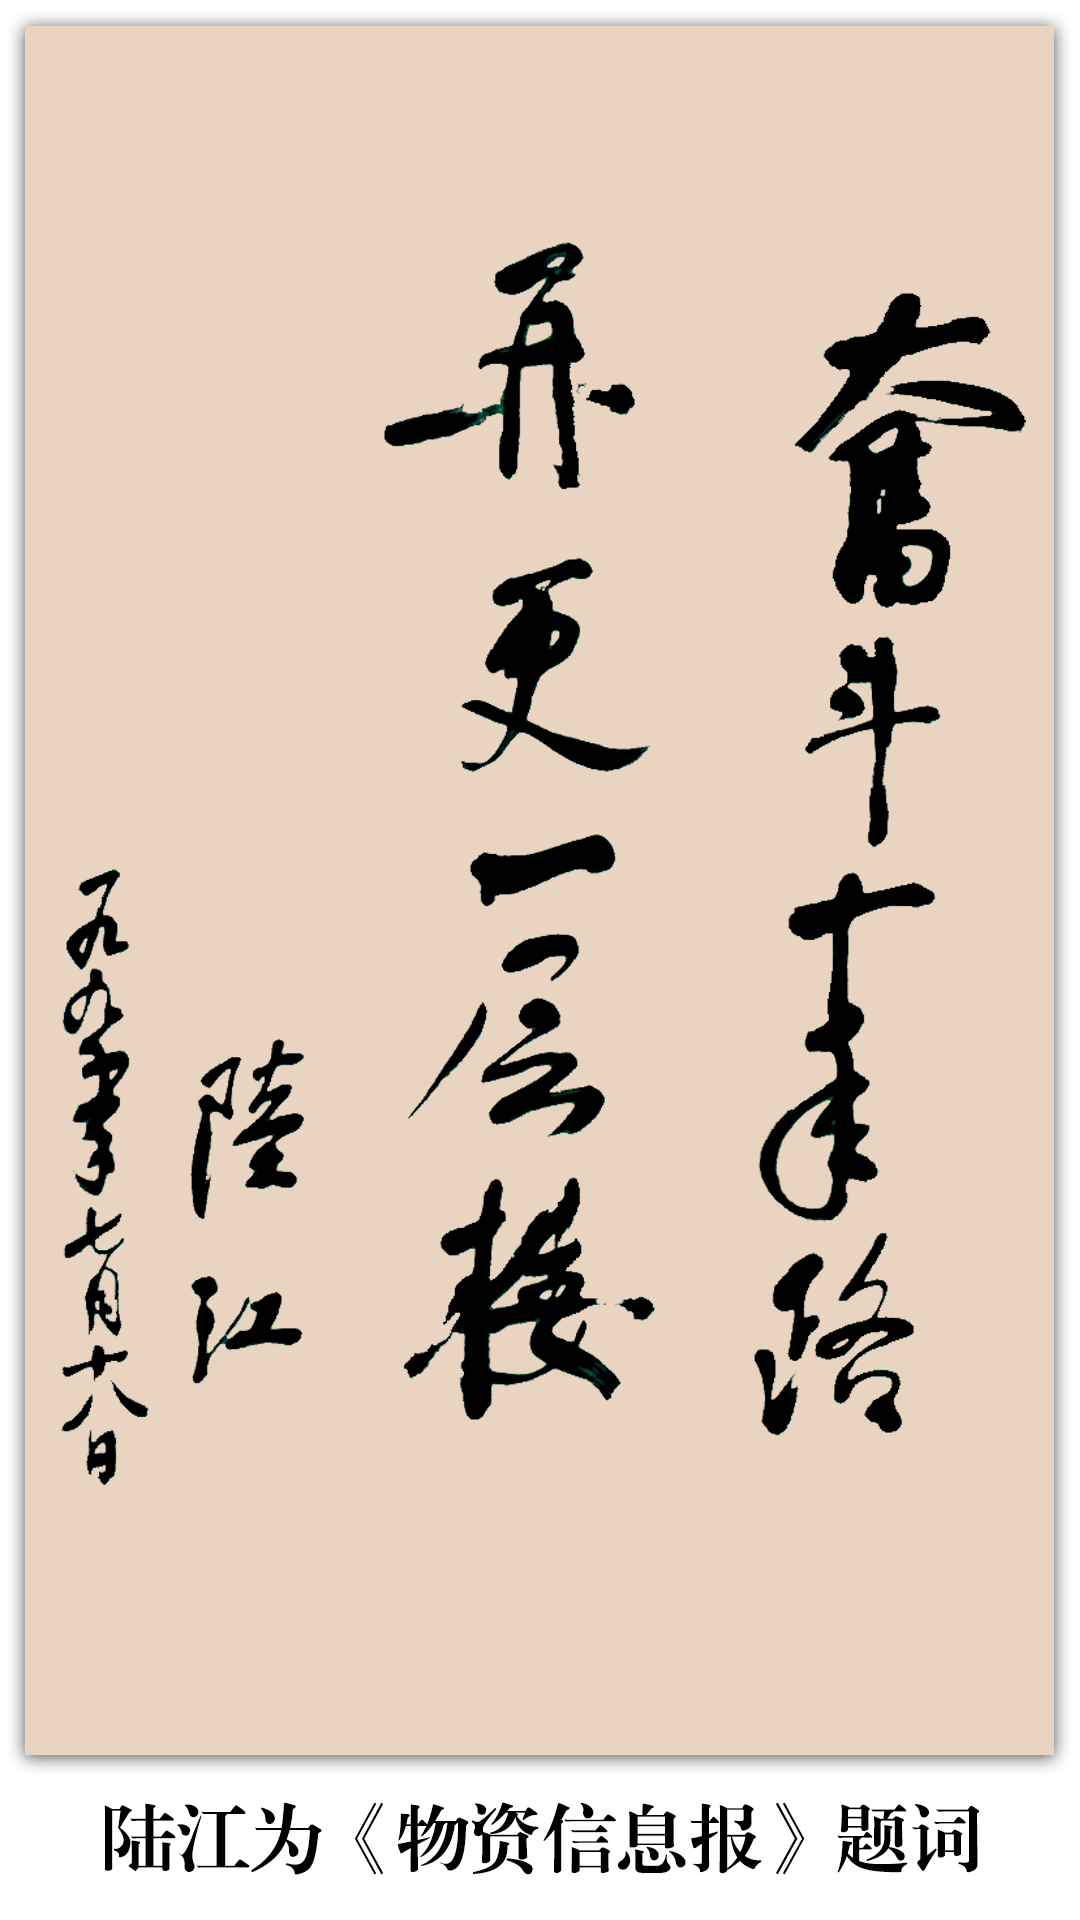 奋斗十年路
再更一层楼
陸江
一九九四年七月十八日
陆江为《物资信息报》题词